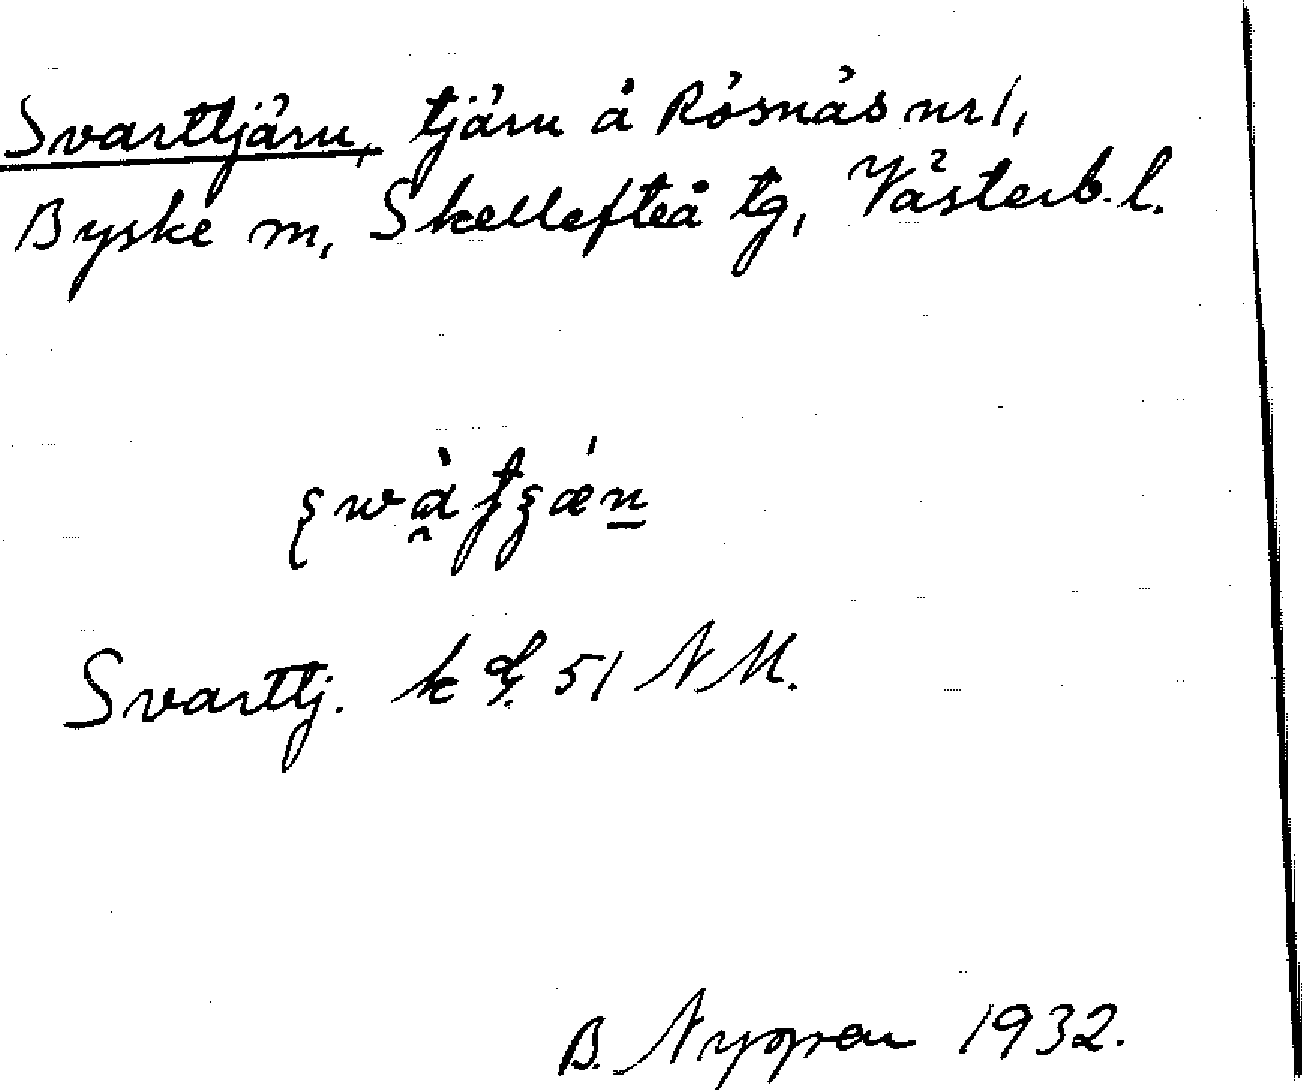 Svarttjärn, tjärn å Rösnäs nr 1,
Byske sn, Skellefteå tg, Västerb. l.
Svarttj. k bl. 51 NM.
B. Nygren 1932.